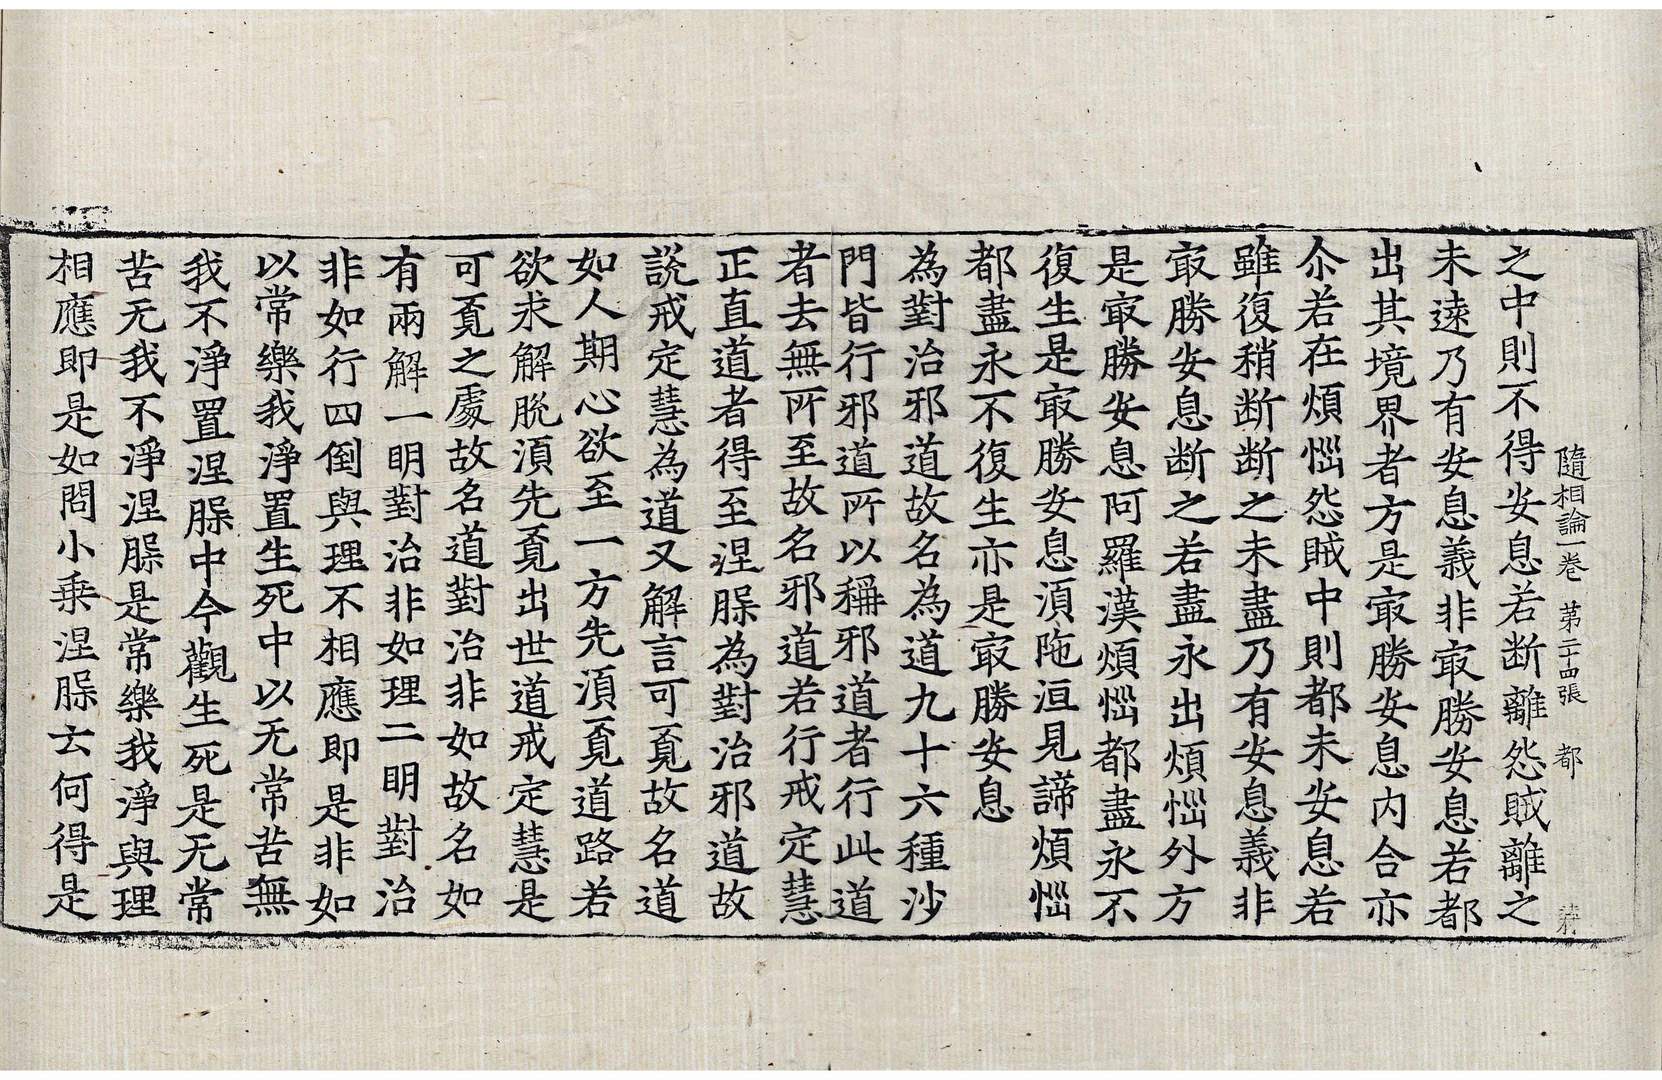 隨相論一卷　第二十四張　都
之中則不得安息若斷離怨賊離之
未遠乃有安息義非㝡勝安息若都
出其境界者方是㝡勝安息内合亦
尒若在煩惱怨賊中則都未安息若
雖復稍断断之未盡乃有安息義非
㝡勝安息断之若盡永出煩惱外方
是㝡勝安息阿羅漢煩惱都盡永不
復生是㝡勝安息湏陁洹見諦煩惱
都盡永不復生亦是㝡勝安息
為對治邪道故名為道九十六種沙
門皆行邪道所以稱邪道者行此道
者去無所至故名邪道若行戒定慧
正直道者得至涅脲為對治邪道故
說戒定慧為道又解言可覔故名道
如人期心欲至一方先湏覔道路若
欲求解脫湏先覔出世道戒定慧是
可覔之處故名道對治非如故名如
有兩解一明對治非如理二明對治
非如行四倒與理不相應即是非如
以常樂我淨置生死中以无常苦無
我不淨置涅脲中今觀生死是无常
苦无我不淨涅脲是常樂我淨與理
相應即是如問小乗涅脲云何得是